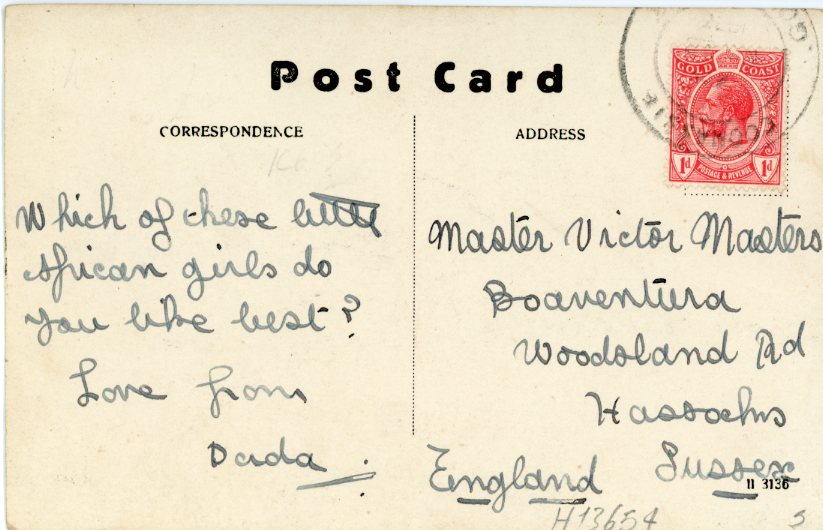 Post Card
CORRESPONDENCE
ADDRESS
GOLD COAST
1d
POSTAGE & REVENUE
1d
Which of these little
African girls do
you like best?
Love from
Dada
Master Victor Masters
Boaventura
Woodsland Rd
Hassocks
Sussex
England
11 3136
H13654
S